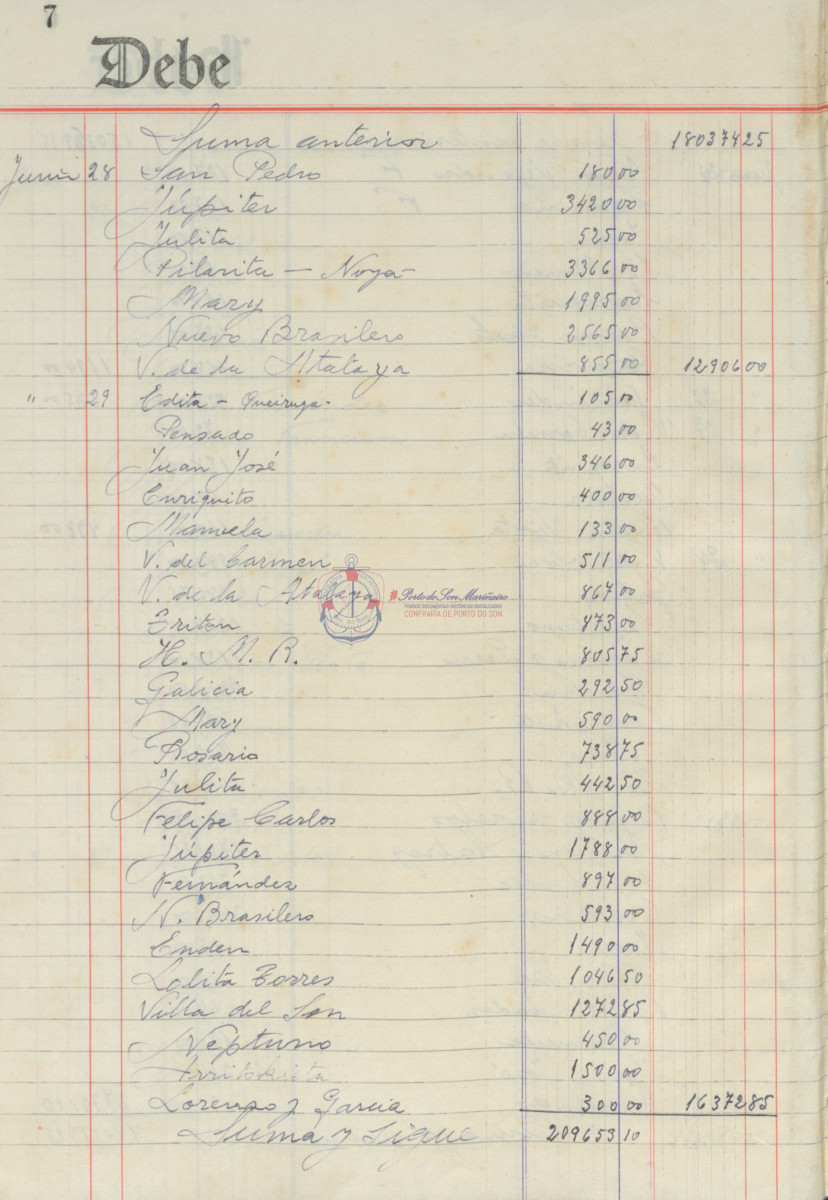 7
Debe
Suma anterior 180374 25
Junio 28 San Pedro 180 00
Júpiter 3420 00
Julita 525 00
Pilarita - Noya - 3366 00
Mary 1995 00
Nuevo Brasilero 2565 00
V. de la Atalaya 855 00 12906 00
" 29 Edita - Queiruga - 105 00
Pensado 43 00
Juan José 346 00
Enriquito 400 00
Manuela 133 00
V. del Carmen 511 00
V. de la Atalaya 867 00
Porto do Son Mariñeiro
FONDOS DOCUMENTAIS HISTÓRICOS DIXITALIZADOS
CONFRARÍA DE PORTO DO SON
Triton 873 00
H. M. R. 805 75
Galicia 292 50
Mary 590 00
Rosario 738 75
Julita 442 50
Felipe Carlos 888 00
Júpiter 1788 00
Fernández 897 00
N. Brasilero 593 00
Enden 1490 00
Lolita Torres 1046 50
Villa del Son 1272 85
Neptuno 450 00
Arritokieta 1500 00
Lorenzo y Garcia 300 00 16372 85
Suma y Sigue 209653 10